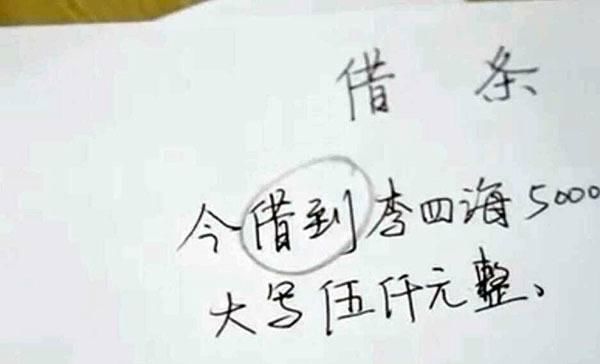 借条
今借到李四海5000
大写伍仟元整、